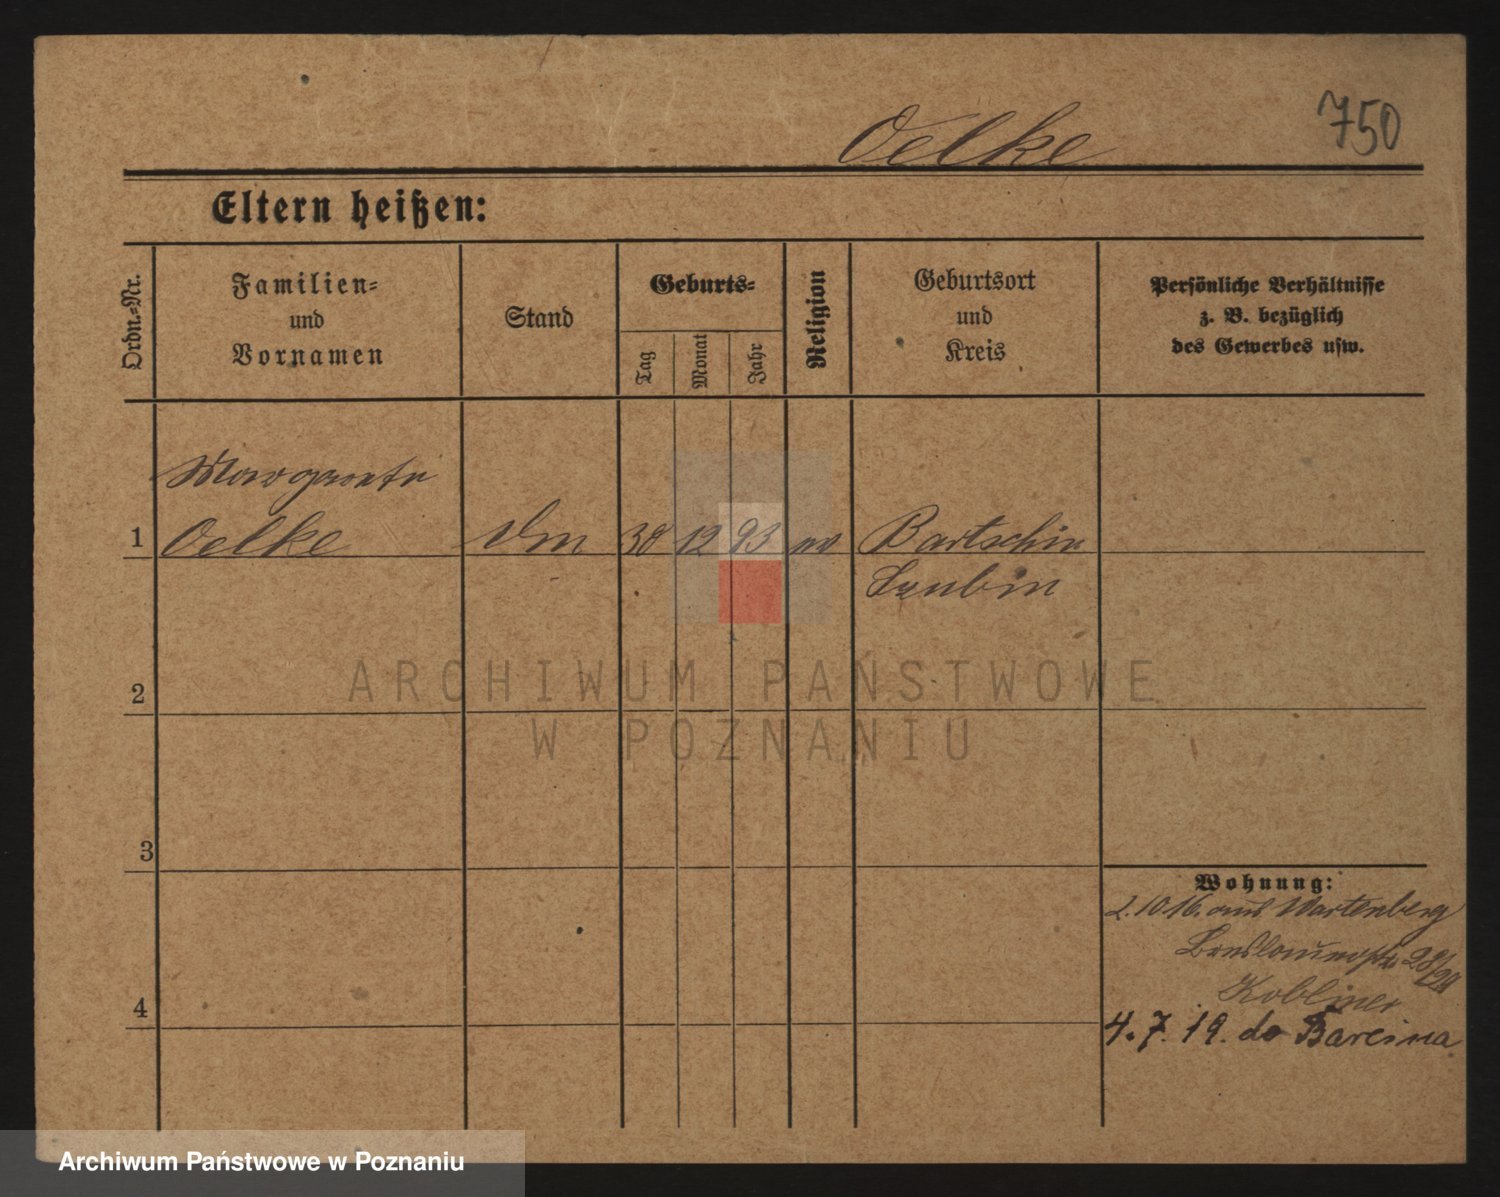 750
Oelke
Eltern heißen:
Ordn.-Nr.
Familien-
und
Vornamen
Stand
Geburts-
Tag
Monat
Jahr
Religion
Geburtsort
und
Kreis
Persönliche Verhältnisse
z. B. bezüglich
des Gewerbes usw.
Margarete
1 Oelke 30 12 93 ev Bartschin
Schubin
2
3
4
Wohnung:
2.10.16. aus Wartenberg
Breslauerstr.
Kobliner
4.7.19. do Barcina
ARCHIWUM PAŃSTWOWE
W POZNANIU
Archiwum Państwowe w Poznaniu